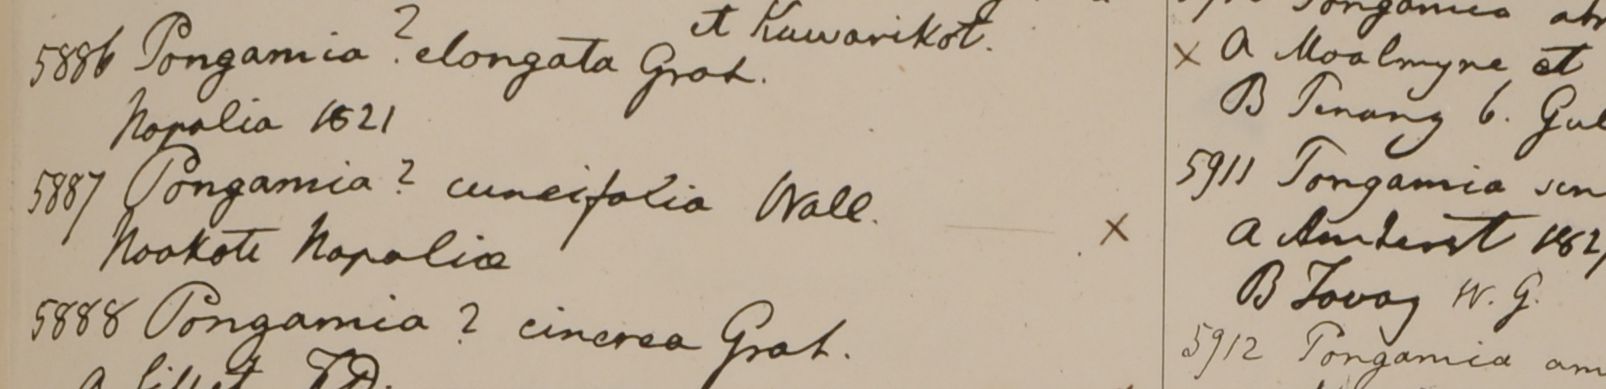 et Kuwarikot.
5886 Pongamia ? elongata Grah.
Napalia 1821
5887 Pongamia ? cuneifolia Wall.
Noakote Napaliæ
5888 Pongamia ? cinerea Grah.
a Sillet
Pongamia
× a Moalmyne et
B Penang 6.
5911 Pongamia
a Amherst 182
B Tavoy W. G.
5912 Pongamia